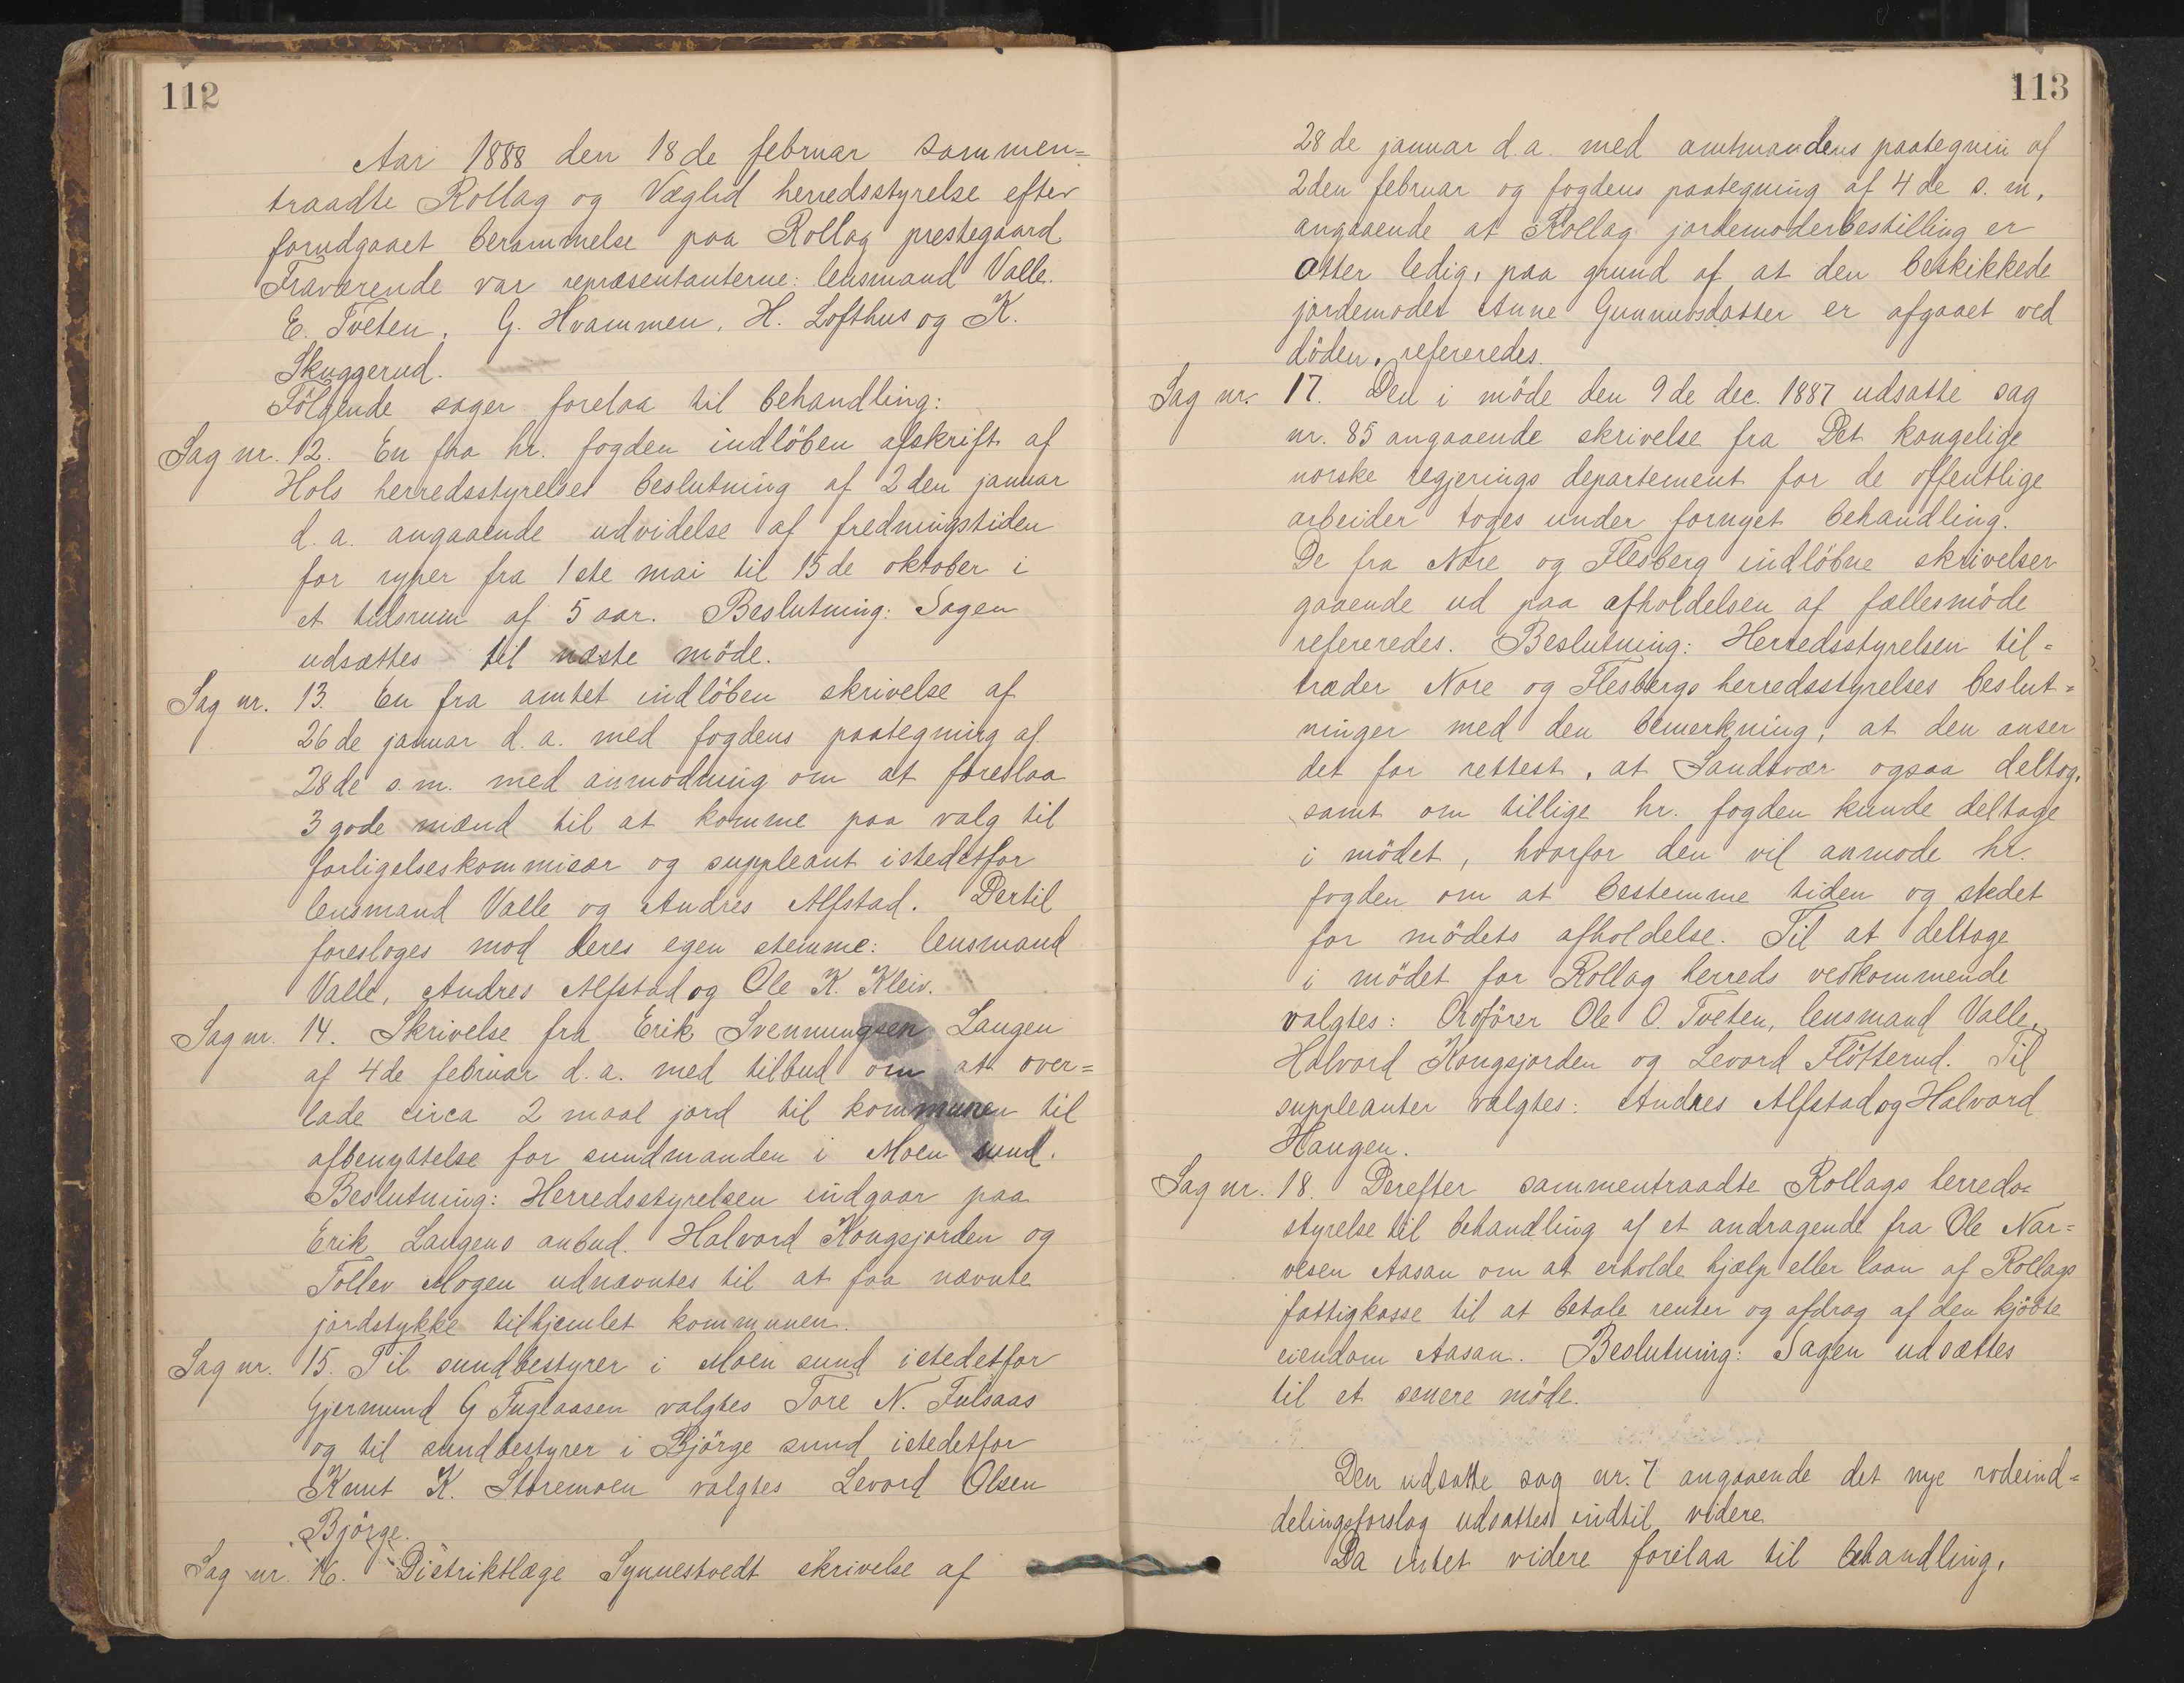 112
Aar 1888 den 18de februar sammen=
traadte Rollag og Væglid herredsstyrelse efter
forudgaaet berammelse paa Rollag prestegaard
Fraværende var repræsentanterne: lensmand Valle.
E. Tveten, G. Hvammen, H. Lofthus og K.
Skuggerud.
Følgende sager forelaa til behandling:
Sag nr. 12. En fra hr. fogden indlöben afskrift af
Hols herredsstyrelses beslutning af 2den januar
d. a. angaaende udvidelse af fredningstiden
for ryper fra 1ste mai til 15de oktober i
et tidsrum af 5 aar. Beslutning: Sagen
udsættes til næste möde.
Sag nr. 13. En fra amtet indlöben skrivelse af
26de januar d. a. med fogdens paategning af
28de s. m. med anmodning om at foreslaa
3 gode mænd til at komme paa valg til
forligelseskommisær og suppleant istedetfor
lensmand Valle og Andres Alfstad. Dertil
foresloges mod deres egen stemme: lensmand
Valle, Andres Alfstad og Ole K. Kleiv.
Sag nr. 14. Skrivelse fra Erik Svennungsen Laugen
af 4de februar d. a. med tilbud om at over=
lade circa 2 maal jord til kommunen til
afbenyttelse for sundmanden i Moen sund.
Beslutning: Herredsstyrelsen indgaar paa
Erik Laugens anbud. Halvord Kongsjorden og
Tollev Mogen udnævntes til at faa nævnte
jordstykke tilhjemlet kommunen.
Sag nr. 15. Til sundbestyrer i Moen sund istedetfor
Gjermund G Fuglaasen valgtes Tore N. Fulsaas
og til sundbestyrer i Björge sund istedetfor
Knut K. Storemoen valgtes Levord Olsen
Björge.
Sag nr. 16. Distriktlæge Synnestvedt skrivelse af
113
28de januar d. a. med amtmandens paategnin af
2den februar og fogdens paategning af 4de s. m.
angaaende at Rollag jordemoderbestilling er
atter ledig, paa grund af at den beskikkede
jordemoder Anne Gunnulsdatter er afgaaet ved
döden, refereredes.
Sag nr. 17. Den i möde den 9de dec. 1887 udsatte sag
nr. 85 angaaende skrivelse fra Det kongelige
norske regjerings departement for de offentlige
arbeider toges under fornyet behandling.
De fra Nore og Flesberg indlöbne skrivelser
gaaende ud paa afholdelsen af fællesmöde
refereredes. Beslutning: Herredsstyrelsen til=
træder Nore og Flesbergs herredsstyrelses beslut=
ninger med den bemerkning, at den anser
det for rettest, at Sandsvær ogsaa deltog,
samt om tillige hr. fogden kunde deltage
i mödet, hvorfor den vil anmode hr.
fogden om at bestemme tiden og stedet
for mödets afholdelse. Til at deltage
i mödet for Rollag herreds vedkommende
valgtes: Ordförer Ole O. Tveten, lensmand Valle,
Halvord Kongsjorden og Levord Flötterud. Til
suppleanter valgtes: Andres Alfstad og Halvard
Haugen.
Sag nr. 18. Derefter sammentraadte Rollags herreds=
styrelse til behandling af et andragende fra Ole Nar=
vesen Aasan om at erholde hjælp eller laan af Rollags
fattigkasse til at betale renter og afdrag af den kjöbte
eiendom Aasan. Beslutning: Sagen udsættes
til et senere möde.
Den udsatte sag nr. 7 angaaende det nye rodeind=
delingsforslag udsattes indtil videre
Da intet videre forelaa til behandling,